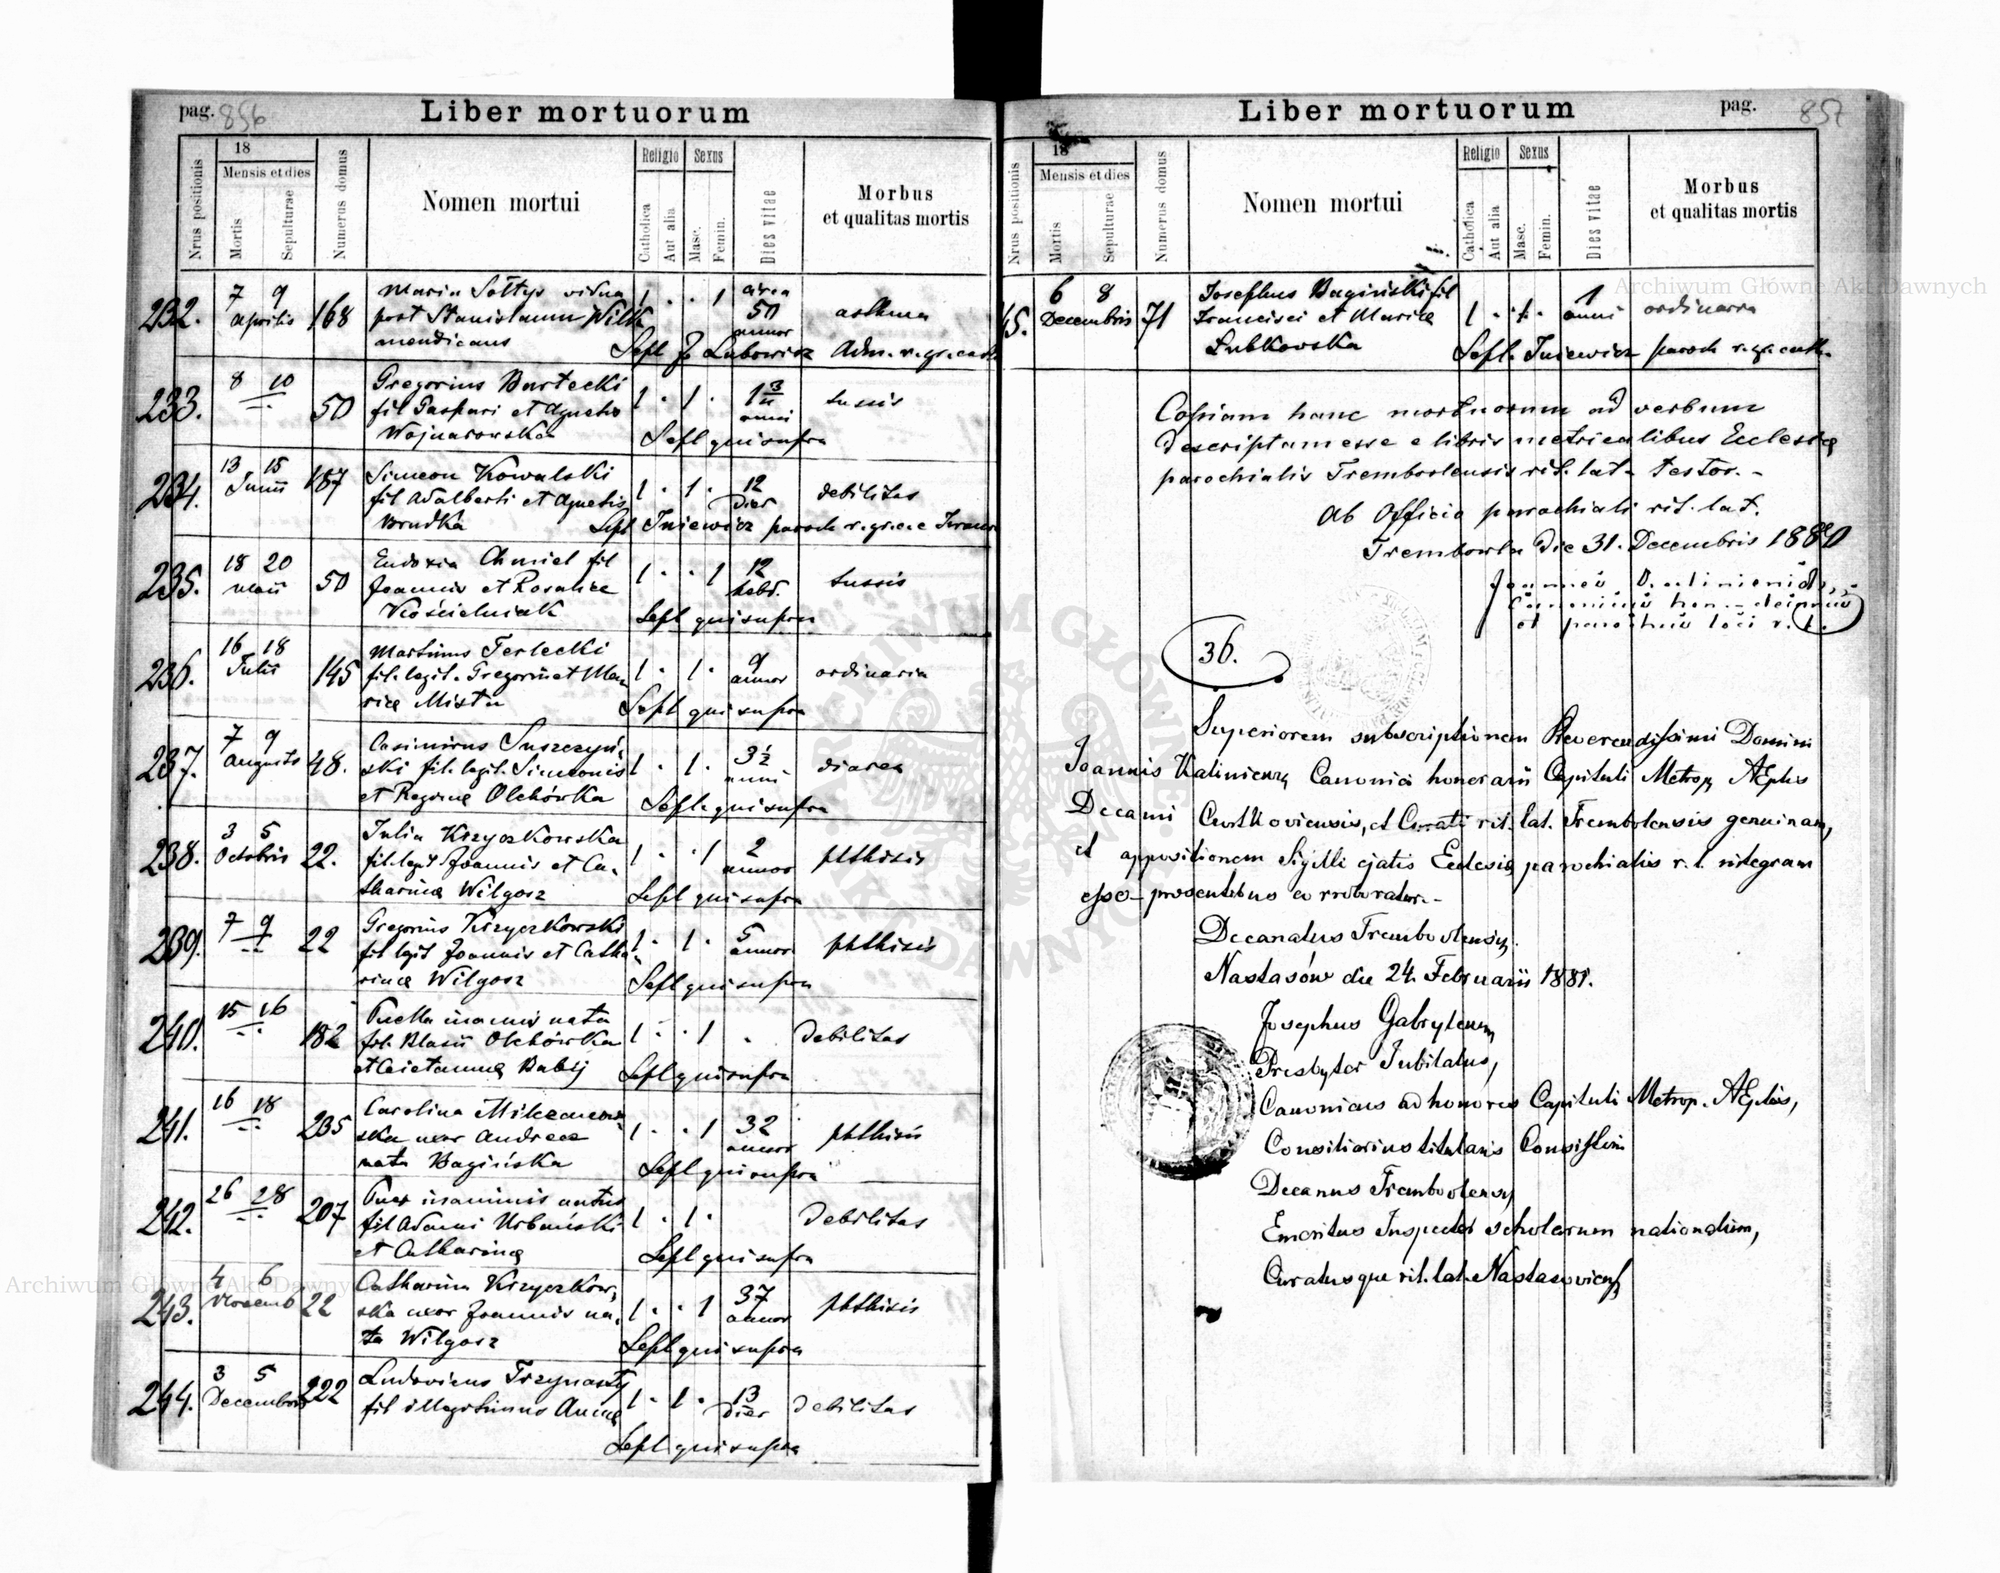 pag. 856
Liber mortuorum
Nrus positionis
18
Mensis et dies
Mortis
Sepulturae
Numerus domus
Nomen mortui
Religio
Catholica
Aut alia
Sexus
Masc.
Femin.
Dies vitae
Morbus
et qualitas mortis
232. 7 9 Aprilis 168 Maria Sołtys vidua 1 . . 1 circa 50 annor asthma
post Stanislaum Wilk
mendicans Sepl J Lubowicz Adm. r. gr. cath
233. 8 10 50 Gregorius Bartecki 1 . 1 . 1 3/4 anni tussis
fil Gaspari et Agnetis
Wojnarowska Sepl qui supra
234. 13 15 Junii 187 Simeon Kowalski 1 . 1 . 12 dier debilitas
fil Adalberti et Agnetis
Brudka Sepl Iniewicz paroch r. gr.
235. 18 20 Maii 50 Eudoxia Chmiel fil 1 . . 1 12 hebd. tussis
Joannis et Rosaliae
Kościelniak Sepl qui supra
236. 16 18 Julii 145 Martinus Terlecki 1 . 1 . 9 annor ordinaria
fil. legit. Gregorii et Ma-
riae Mista Sepl qui supra
237. 7 9 Augusti 48. Casimirus Suszczyń- 1 . 1 . 3 1/2 anni diarea
ski fil. legit. Simeonis
et Reginae Olchówka Sepl. qui supra
238. 3 5 Octobris 22. Julia Krzyczkowska 1 . . 1 2 annor phthisis
fil. legit. Joannis et Ca-
tharinae Wilgosz Sepl qui supra
239. 7 9 22 Gregorius Krzyczkowski 1 . 1 . 5 annor phthisis
fil legit Joannis et Catha-
rinae Wilgosz Sepl qui supra
240. 15 16 182 Puella inanimis nata 1 . . 1 . debilitas
fil. Blasii Olchówka
et Caietannae Babij Sepl qui supra
241. 16 18 235 Carolina 1 . . 1 32 annor phthisis
ska uxor Andreae
nata Bagińska Sepl qui supra
242. 26 28 207 Puer inanimis natus 1 . 1 . debilitas
fil Adami Urbański
et Catharinae Sepl qui supra
243. 4 6 Novemb 22 Catharina Krzyczkow- 1 . . 1 37 annor phthisis
ska uxor Joannis na-
ta Wilgosz Sepl qui supra
244. 3 5 Decembris 222 Ludovicus Trzynasty 1 . 1 . 13 dier debilitas
fil illegitimus Annae
Sepl qui supra
Liber mortuorum
pag. 857
Nrus positionis
18
Mensis et dies
Mortis
Sepulturae
Numerus domus
Nomen mortui
Religio
Catholica
Aut alia
Sexus
Masc.
Femin.
Dies vitae
Morbus
et qualitas mortis
45. 6 8 Decembris 71 Josephus Bagiński fil 1 . 1 . 1 anni ordinaria
Francisci et Mariae
Lubkowska Sepl. Iniewicz paroch r. gr. cath.
Copiam hanc mortuorum ad verbum
descriptam esse e libris metricalibus Ecclesiae
parochialis Trembowlensis rit. lat. testor. -
Ab Officio parochiali rit. lat.
Trembowla die 31. Decembris 1880
Joannes
Canonicus hon.
et parochus loci r. l.
36.
Superiorem subscriptionem Reverendissimi Domini
Joannis Kaliniewicz Canonici honorarii Capituli Metrop.
Decani Czortkoviensis, et Curati rit. lat. Trembolensis genuinam,
et appositionem Sigilli ejatis Ecclesiae parochialis r. l. integram
esse praesentibus corroboratur. -
Decanatus Trembovlensis.
Nastasów die 24. Februarii 1881.
Josephus
Presbyter Jubilatus,
Canonicus ad honores Capituli Metrop.
Consiliarius titularis Consistorii
Decanus Trembovlensis
Emeritus Inspector scholarum nationalium,
Curatusque rit. lat. Nastasoviens.
Archiwum Główne Akt Dawnych
Archiwum Główne Akt Dawnych
ARCHIWUM GŁÓWNE AKT DAWNYCH